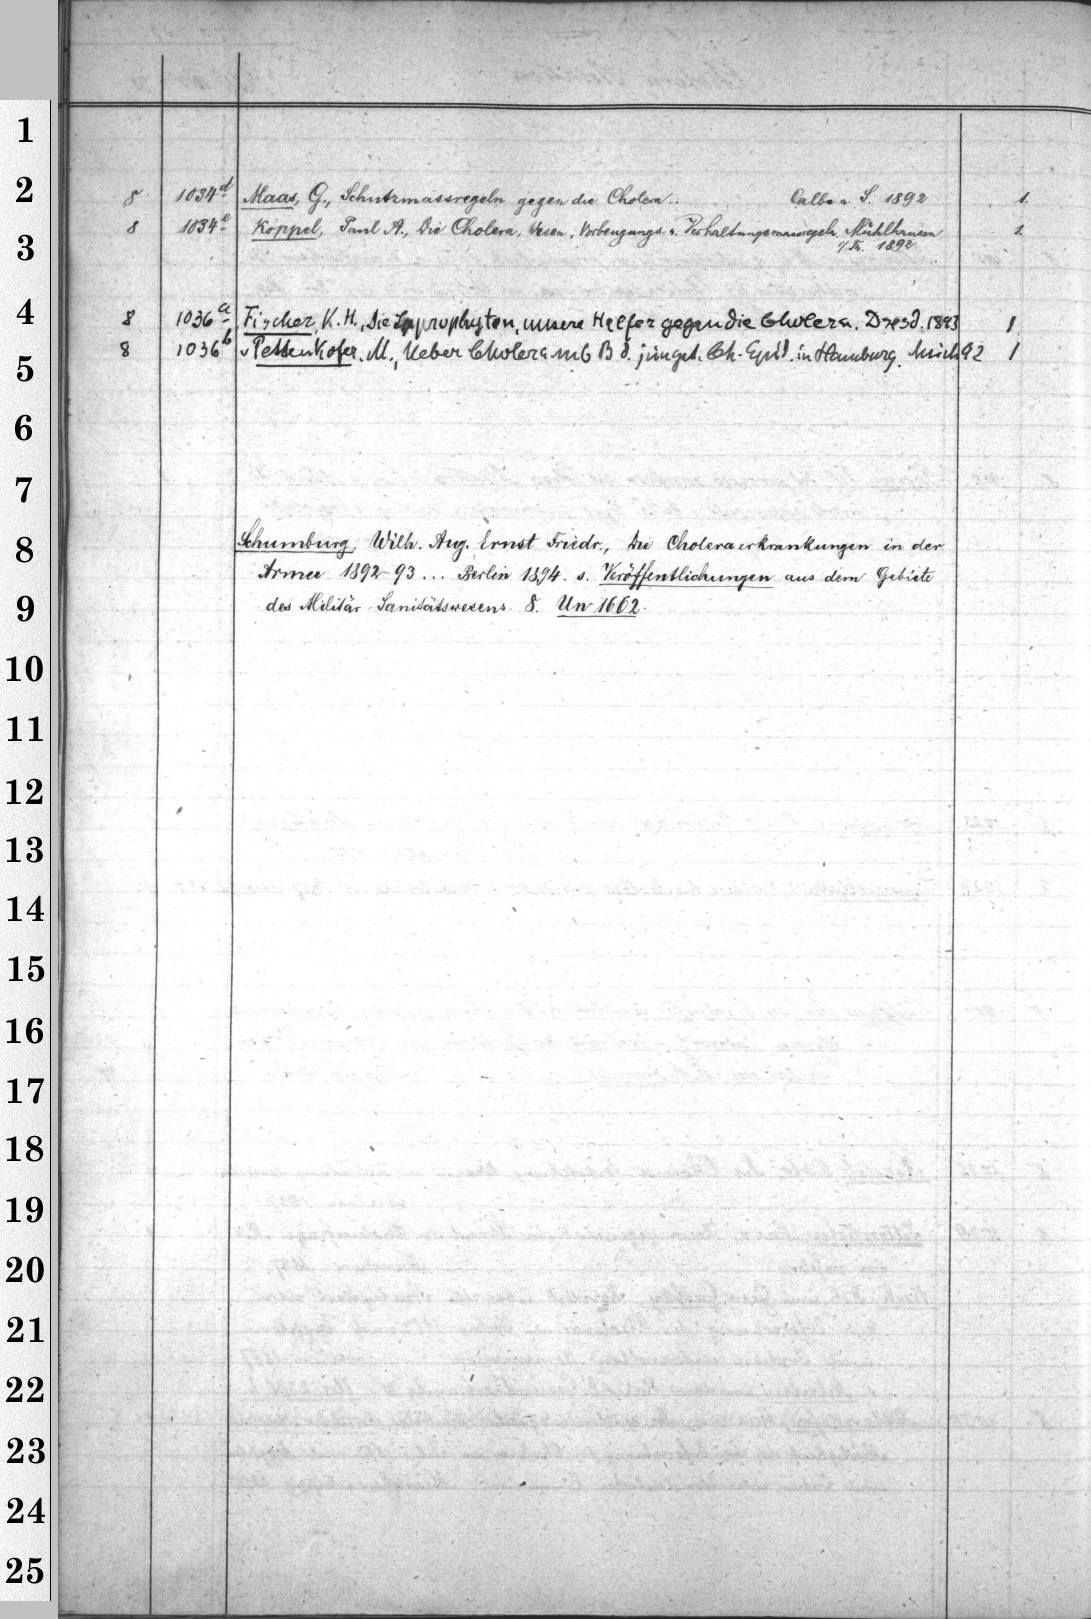 1
2
3
4
5
6
7
8
9
10
11
12
13
14
15
16
17
18
19
20
21
22
23
24
25
8 1034d Maas, G., Schutzmassregeln gegen die Cholera.. Calbe a. S. 1892 1.
8 1034e Köppel, Paul A., Die Cholera, Wesen, Vorbeugungs- u. Verhaltungsmassregeln. Mühlhausen 1.
i/Th. 1892
8 1036a Fischer, K. H., Die unsere Helfer gegen die Cholera. Dresd. 1893 1
8 1036b v Pettenkofer, M., Ueber Cholera mit B d. jüngst. Ch.-Epid. in Hamburg. Münch 92 1
Schumburg, Wilh. Aug. Ernst Friedr., Die Choleraerkrankungen in der
Armee 1892-93 ... Berlin 1894. s. Veröffentlichungen aus dem Gebiete
des Militär-Sanitätswesens. 8. Un 1662.